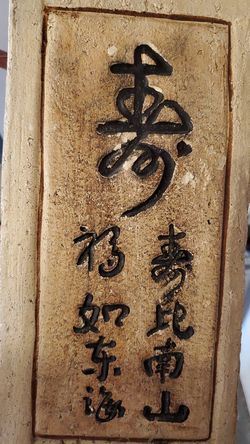 寿
寿比南山
福如东海